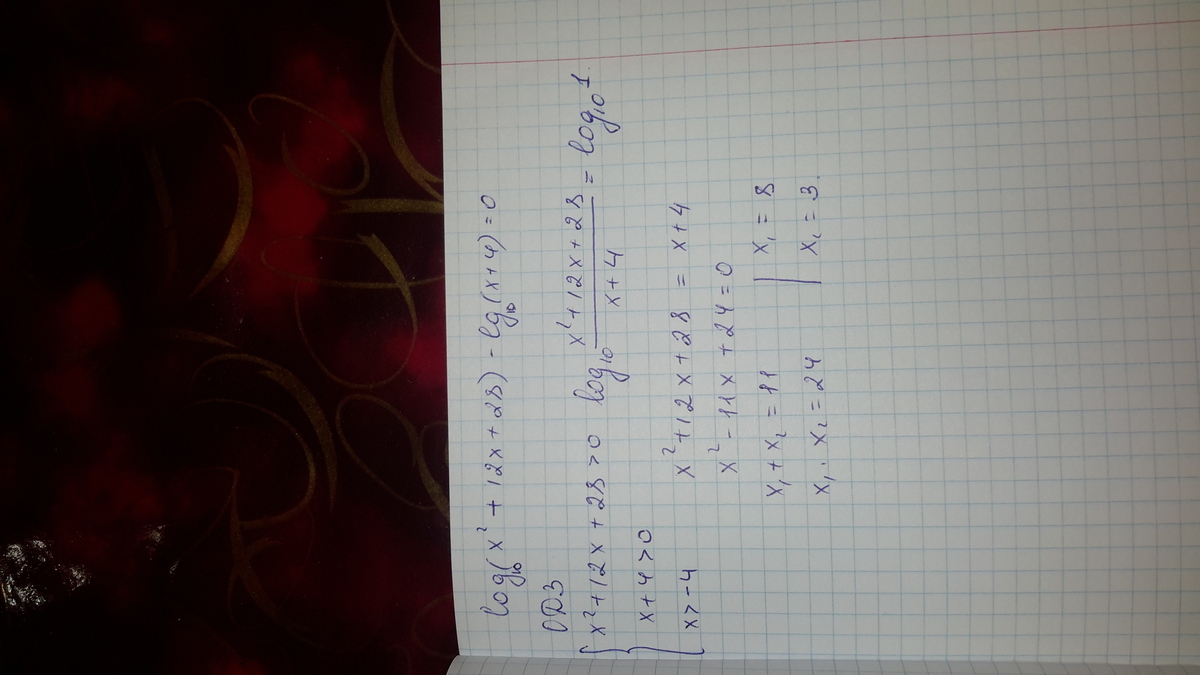 log₁₀(x² + 12x + 28) - lg₁₀(x+4) = 0
ОДЗ
{ x² + 12x + 28 > 0
x + 4 > 0
{ x > -4
log₁₀ (x² + 12x + 28)/(x + 4) = log₁₀ 1.
x² + 12x + 28 = x + 4
x² - 11x + 24 = 0
x₁ + x₂ = 11 | x₁ = 8
x₁ · x₂ = 24 | x₂ = 3.